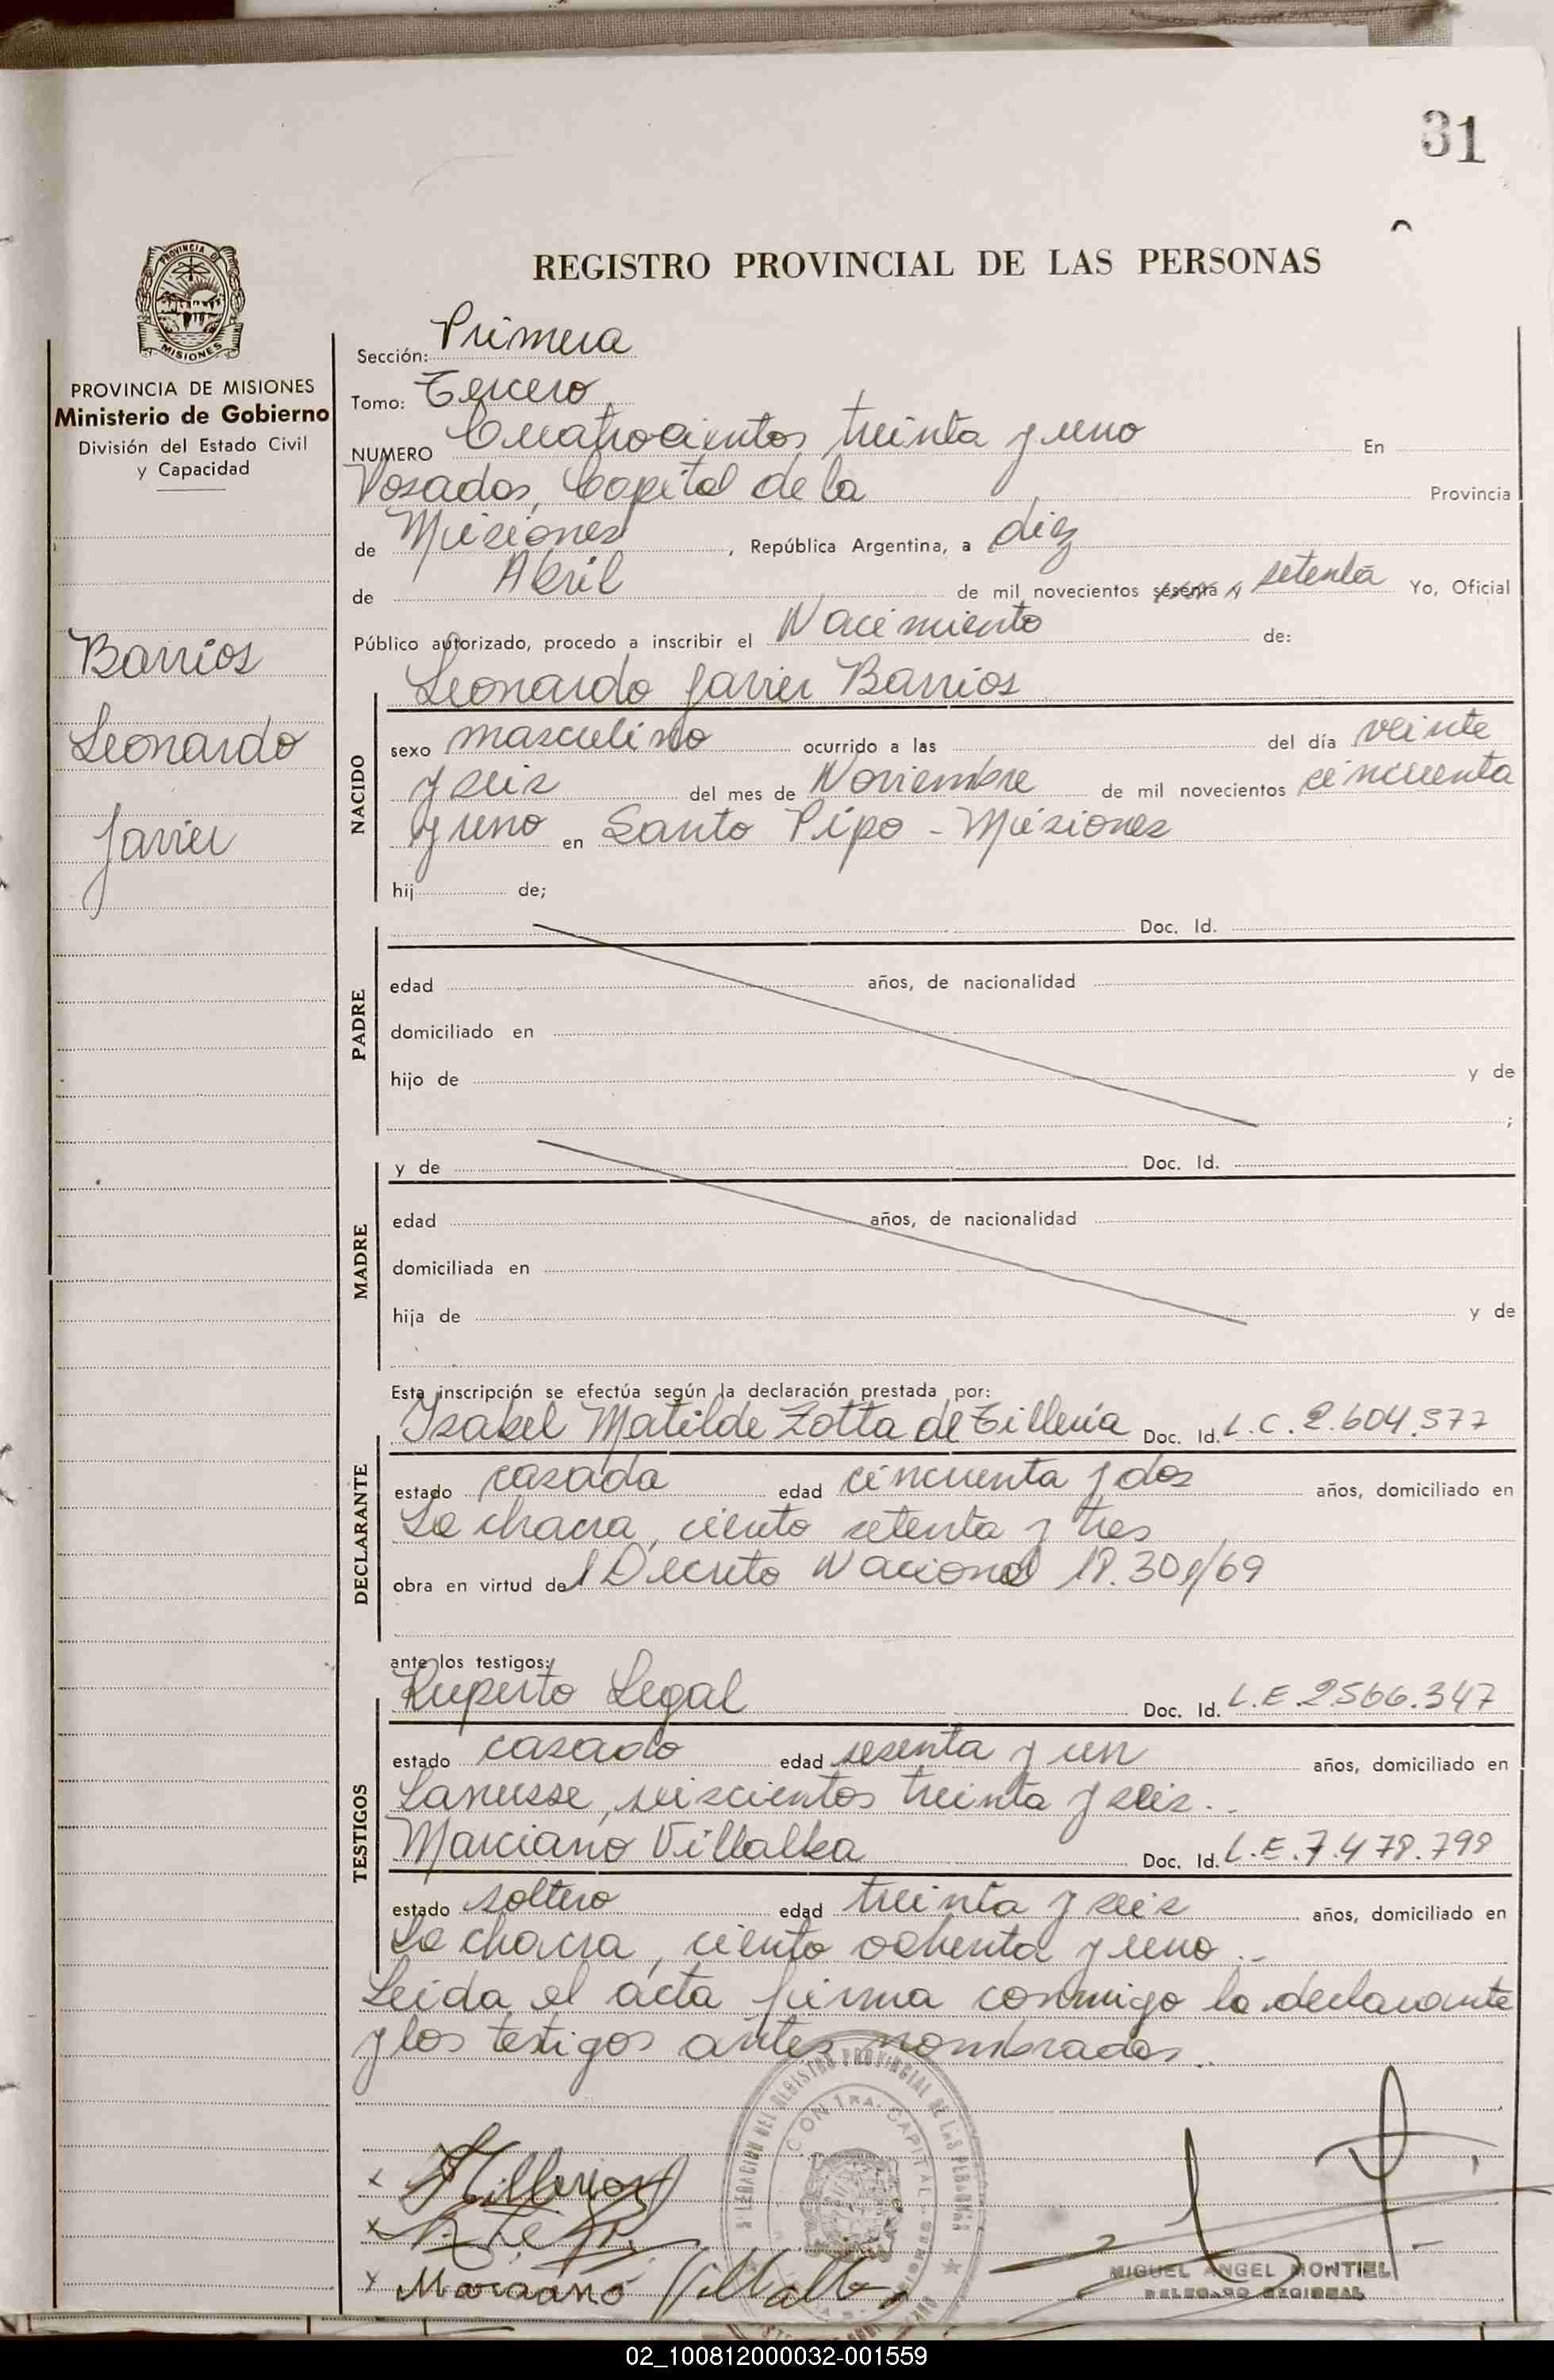 31
REGISTRO PROVINCIAL DE LAS PERSONAS
PROVINCIA DE MISIONES
Ministerio de Gobierno
División del Estado Civil
y Capacidad
Barrios
Leonardo
Javier
Sección: Primera
Tomo: Tercero
NUMERO Cuatrocientos treinta y uno En
Posadas, Capital de la Provincia
de Misiones, República Argentina, a diez
de Abril de mil novecientos sesenta y setenta Yo, Oficial
Público autorizado, procedo a inscribir el Nacimiento de:
Leonardo Javier Barrios
NACIDO
sexo masculino ocurrido a las del día veinte
y seis del mes de Noviembre de mil novecientos cincuenta
y uno en Santo Pipo - Misiones
hij de;
PADRE
Doc. Id.
edad años, de nacionalidad
domiciliado en
hijo de y de
;
MADRE
y de Doc. Id.
edad años, de nacionalidad
domiciliada en
hija de y de
Esta inscripción se efectúa según la declaración prestada por:
DECLARANTE
Isabel Matilde Zotta de Tilleria Doc. Id. L.C. 2.604.577
estado casada edad cincuenta y dos años, domiciliado en
La chacra, ciento setenta y tres
obra en virtud del Decreto Nacional
ante los testigos:
TESTIGOS
Ruperto Legal Doc. Id. L.E. 2566.347
estado casado edad sesenta y un años, domiciliado en
Lanusse, seiscientos treinta y seis..
Marciano Villalba Doc. Id. L.E. 7.478.798
estado soltero edad treinta y seis años, domiciliado en
La chacra, ciento ochenta y uno..
Leida el acta firma conmigo la declarante
y los testigos antes nombrados..
Marciano Villalba
MIGUEL ANGEL MONTIEL
DELEGADO REGIONAL
02_100812000032-001559